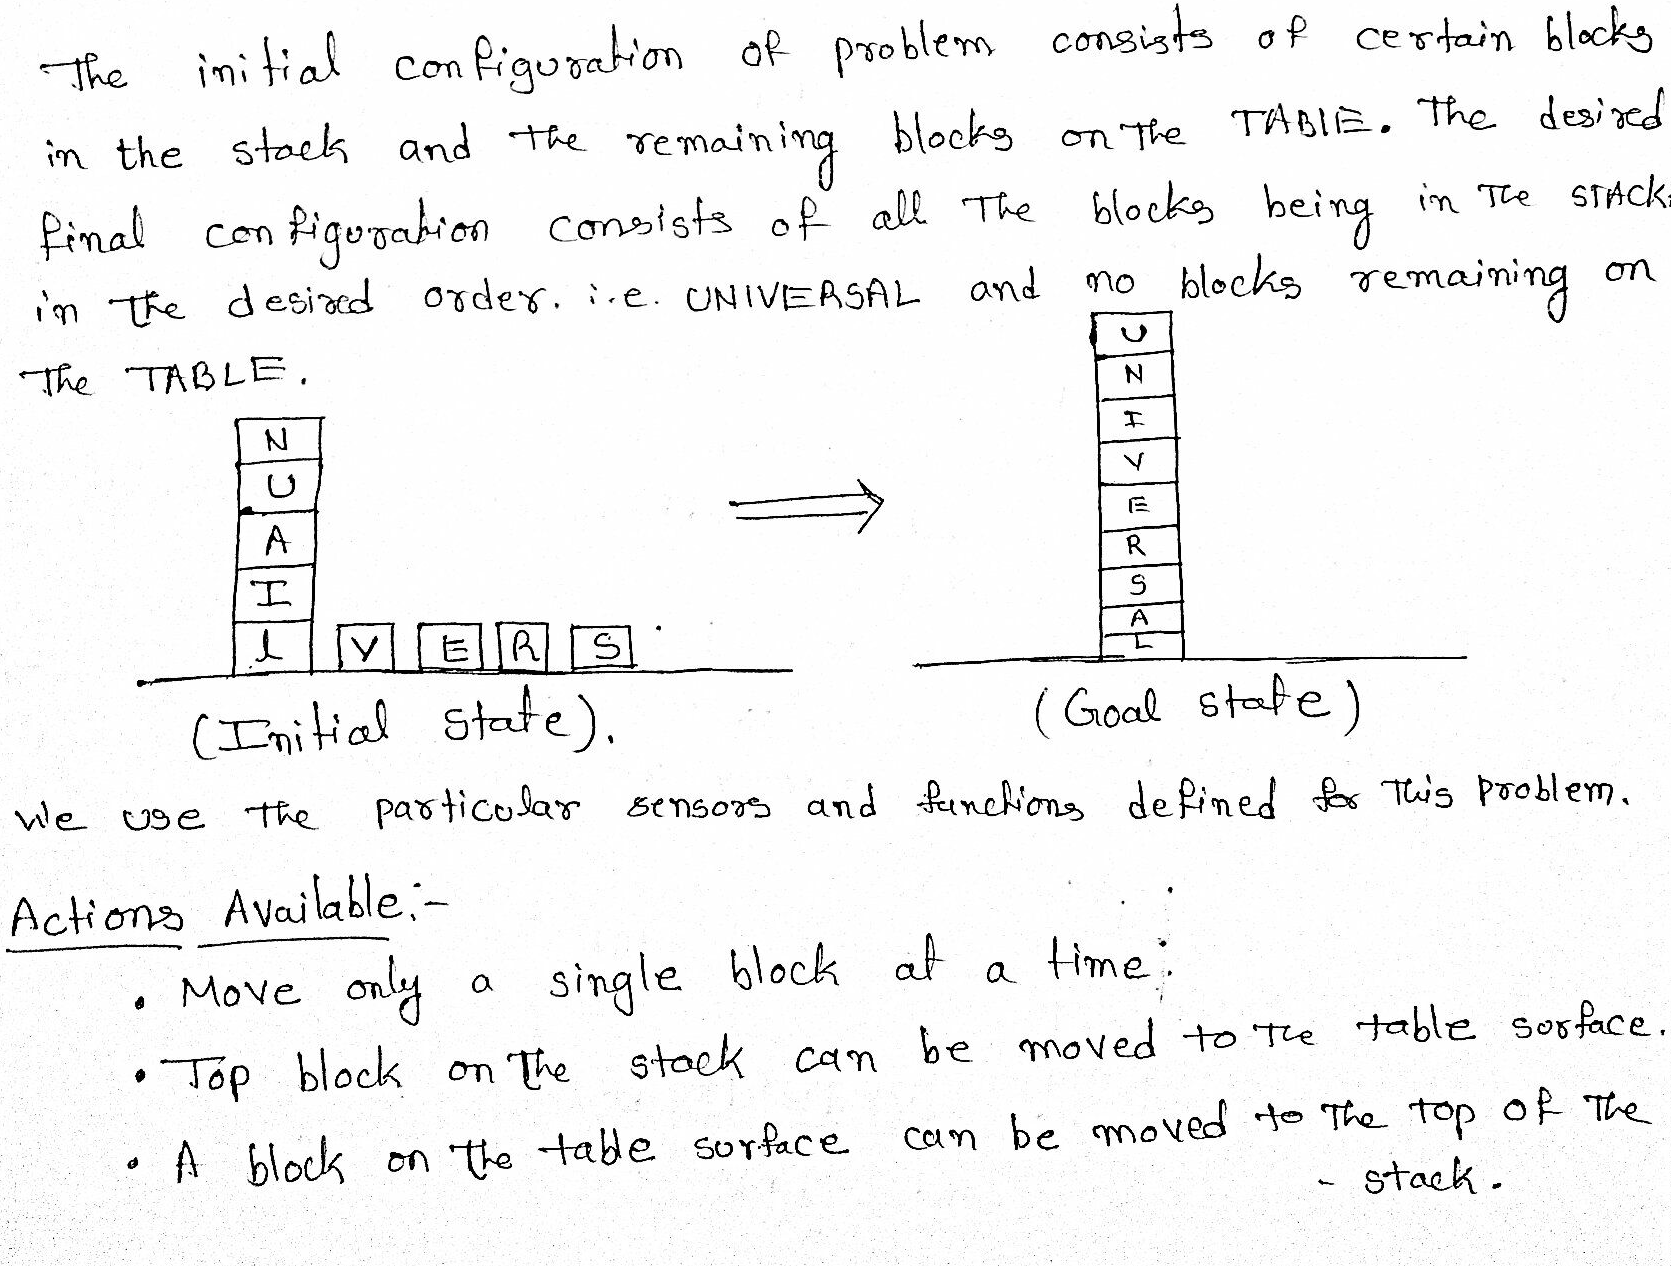 The initial configuration of problem consists of certain blocks
in the stack and the remaining blocks on the TABLE. The desired
final configuration consists of all the blocks being in the STACK
in the desired order. i.e. UNIVERSAL and no blocks remaining on
the TABLE.
U
N
I
V
E
R
S
A
L
N
U
A
I
l V E R S
(Initial state).
(Goal state)
We use the particular sensors and functions defined for this problem.
Actions Available:-
• Move only a single block at a time.
• Top block on the stack can be moved to the table surface.
• A block on the table surface can be moved to the top of the
- stack.